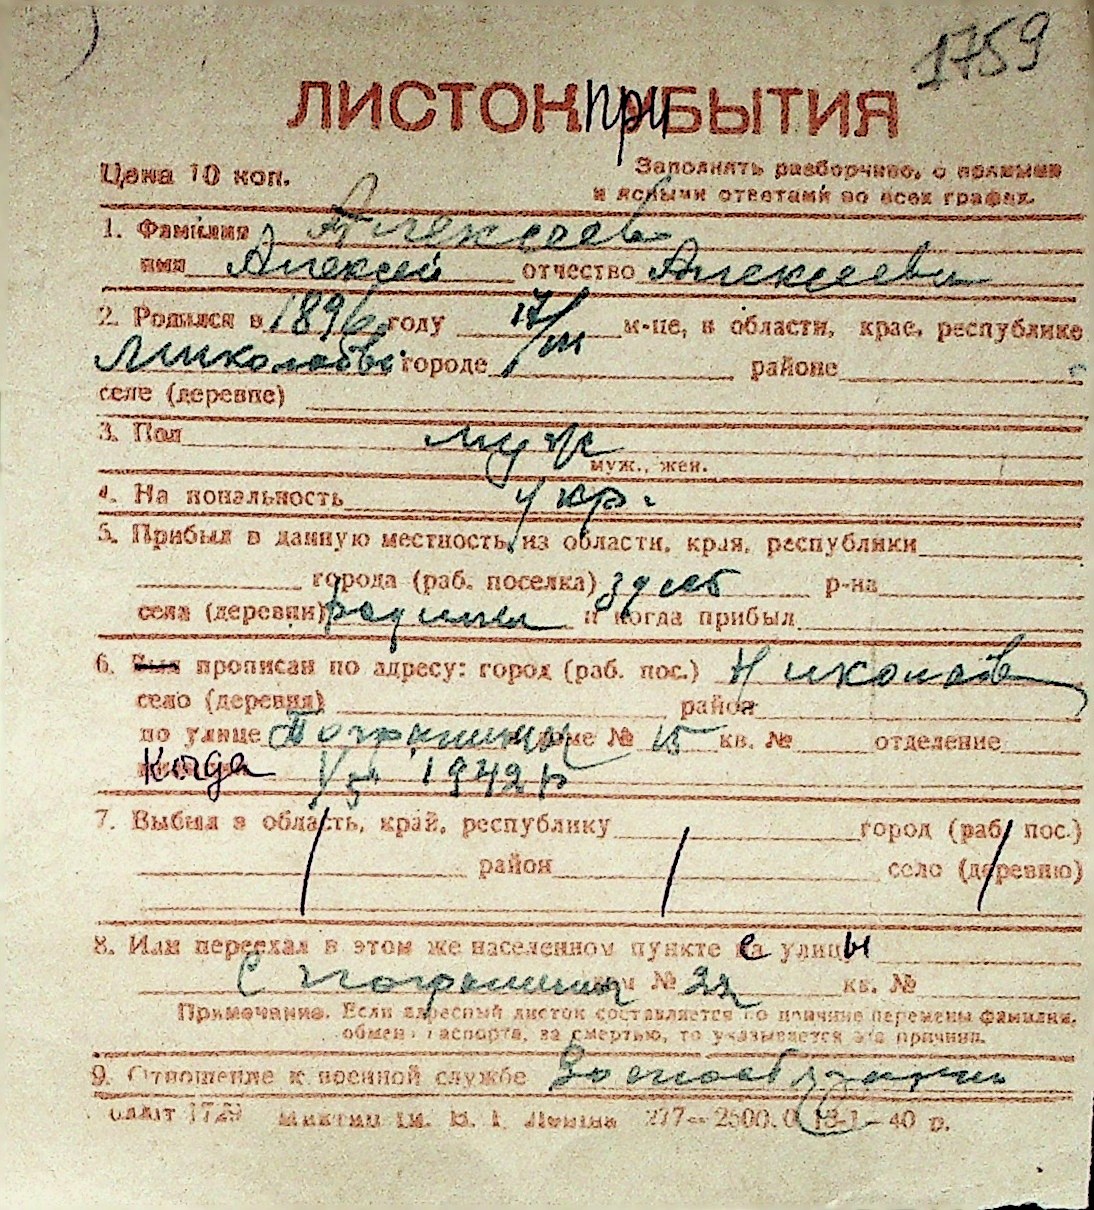 1759
ЛИСТОК ПРИБЫТИЯ
Цена 10 коп.
Заполнять разборчиво, с прямыми
и ясными ответами во всех графах.
1. Фамилия Алексеев
имя Алексей отчество Алексеевич
2. Родился в 1896 году 17/III м-це, в области, крае, республике
Николаев городе районе
селе (деревне)
3. Пол муж
муж., жен.
4. На иональность укр.
5. Прибыл в данную местность из области, края, республики
города (раб. поселка) здесь р-на
села (деревни) родился и когда прибыл
6. прописан по адресу: город (раб. пос.) Николаев
село (деревня) район
по улице Погранична доме № 15 кв. № отделение
Когда 1/5 1942 р
7. Выбыл в область, край, республику город (раб. пос.)
район село (деревню)
8. Или переехал в этом же населенном пункте с улицы
С Погранична дом № 22 кв. №
Примечание. Если адресный листок составляется по причине перемены фамилии,
обмен паспорта, за смертью, то указывается эта причина.
9. Отношение к военной службе Военнообязанный
1729 Ленина 277—2500.0 13-1—40 р.